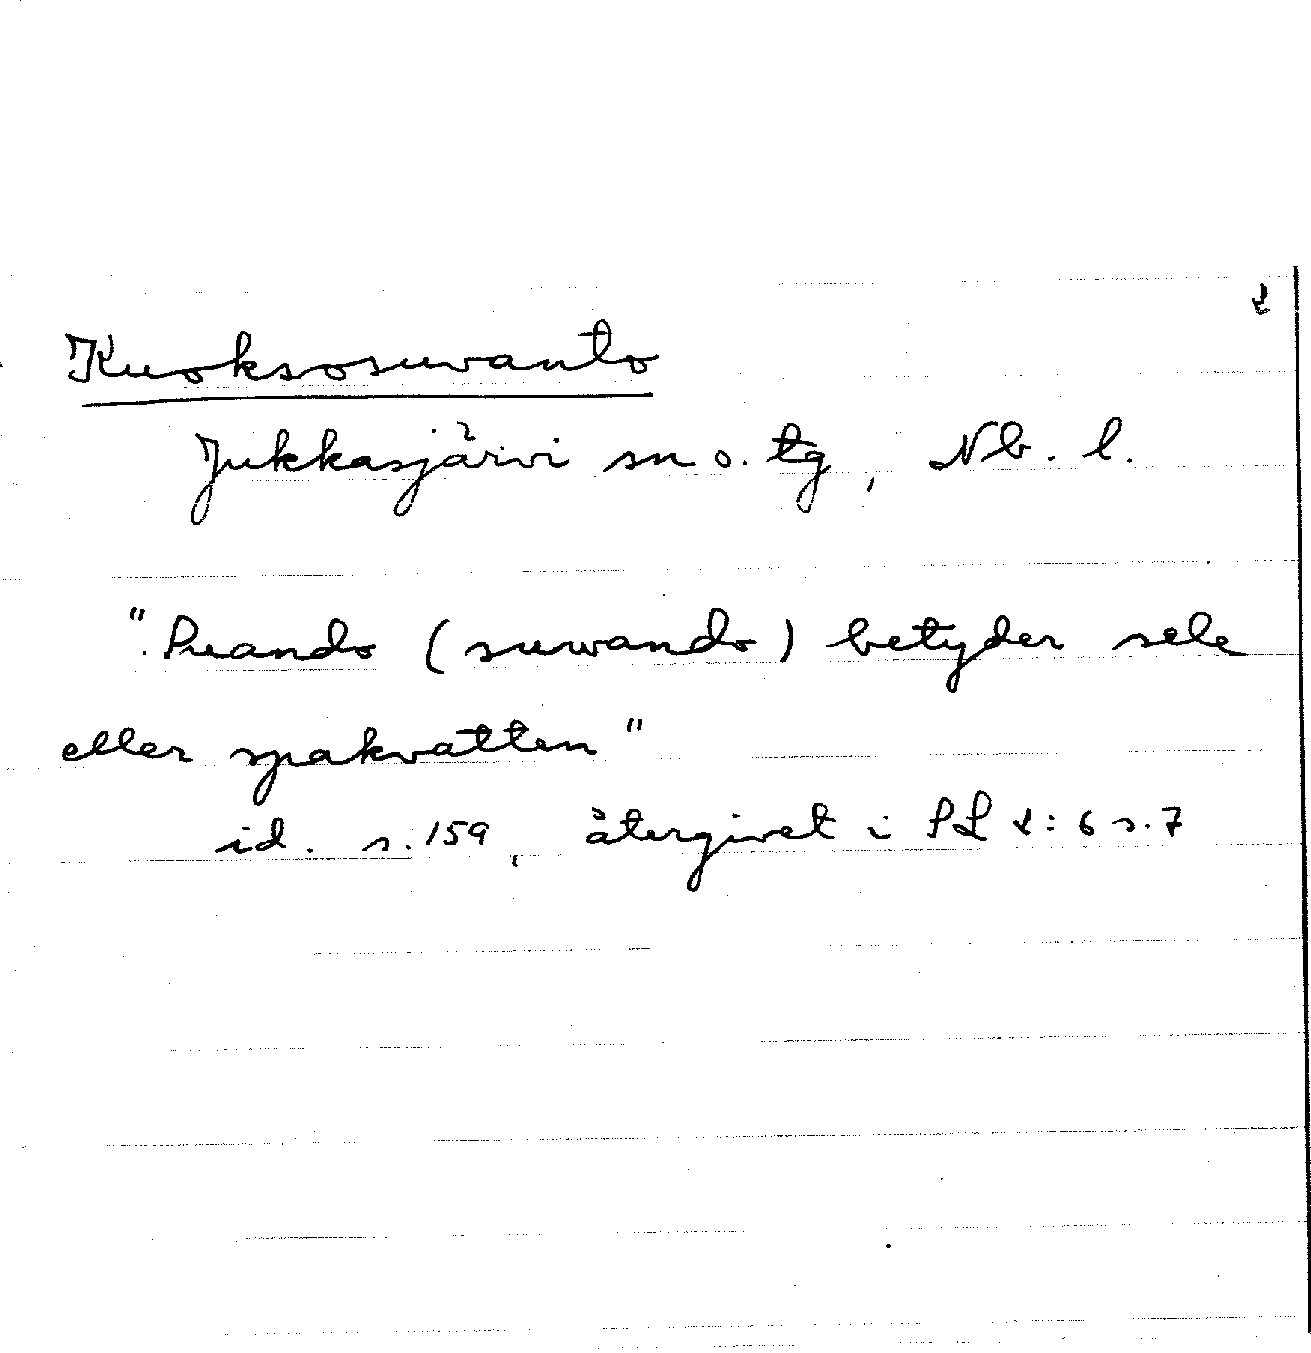 Kuoksosuvanto
Jukkasjärvi sn o. tg, Nb. l.
"Suando (suwando) betyder sele
eller spakvatten"
id. s. 159, återgivet i SL 2:6 s. 7